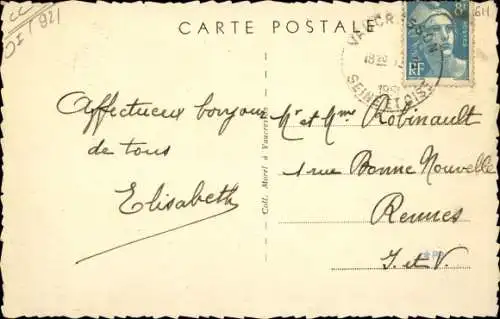 CC
OI 921
CARTE POSTALE
VAUCRESSON
1830
SEINE ET OISE
8F
RF
Affectueux bonjour
de tous
Elisabeth
Coll. Morel à Vaucresson
Mr et Mme Robinault
1 rue Bonne Nouvelle
Rennes
I. et V.